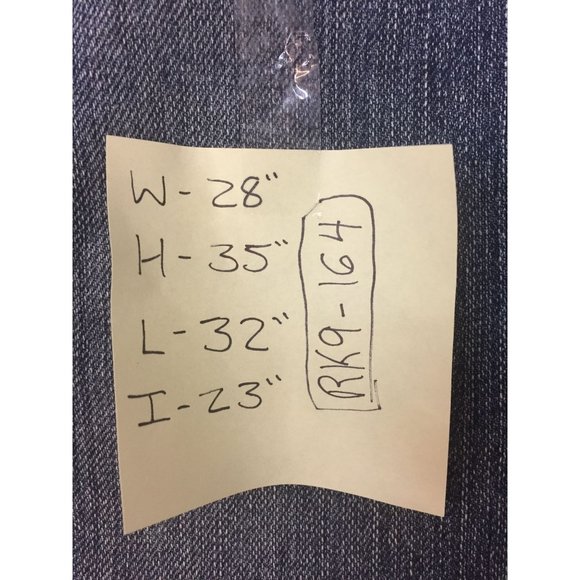 W - 28"
H - 35"
L - 32"
I - 23"
RK9 - 164